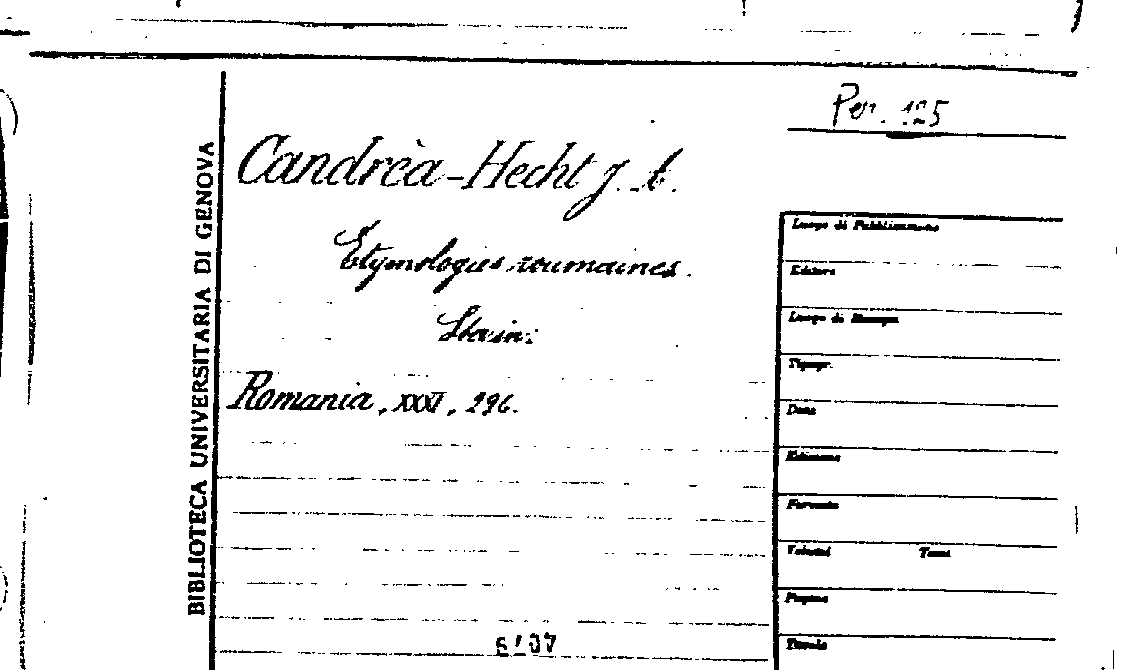 Per. 125
BIBLIOTECA UNIVERSITARIA DI GENOVA
Candrèa-Hecht J. A.
Etymologies roumaines.
Romania, XXXI, 296.
Luogo di Pubblicazione
Editore
Luogo di Stampa
Tipogr.
Data
Edizione
Formato
Volumi Tomi
Pagine